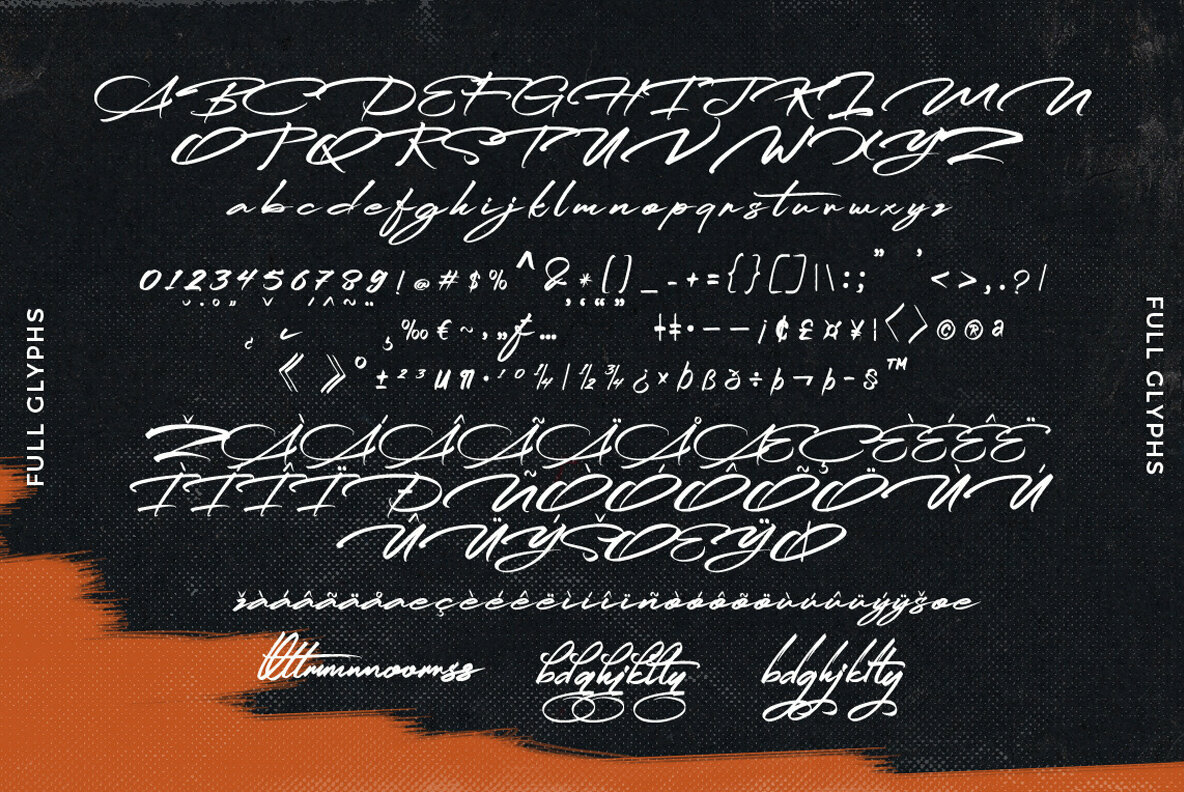 FULL GLYPHS
A B C D E F G H I J K L M N
O P Q R S T U V W X Y Z
a b c d e f g h i j k l m n o p q r s t u r w x y z
0 1 2 3 4 5 6 7 8 9 ! @ # $ % ^ & * ( ) _ - + = { } [ ] | \ : ; " ' < > , . ? /
˘ · ° ˝ ˇ ´ ^ ~ ¨ ’ ‘ “ ”
¿ ¸ ‰ € ~ , „ ƒ … † ‡ • – — ¡ ¢ £ ¤ ¥ | ‹ › © ® ª
« » º ± ² ³ µ ¶ · ¹ ⁰ ¼ | ½ ¾ ¿ × Þ ß ð ÷ þ ¬ þ - § ™
Ž À Á Â Ã Ä Å Æ Ç È É Ê Ë
Ì Í Î Ï Ð Ñ Ò Ó Ô Õ Ö Ù Ú
Û Ü Ý Š Œ Ÿ Ø
ž à á â ã ä å æ ç è é ê ë ì í î ï ñ ò ó ô õ ö ù ú û ü ý ÿ š œ
bdghjkltty
bdghjkltty
FULL GLYPHS